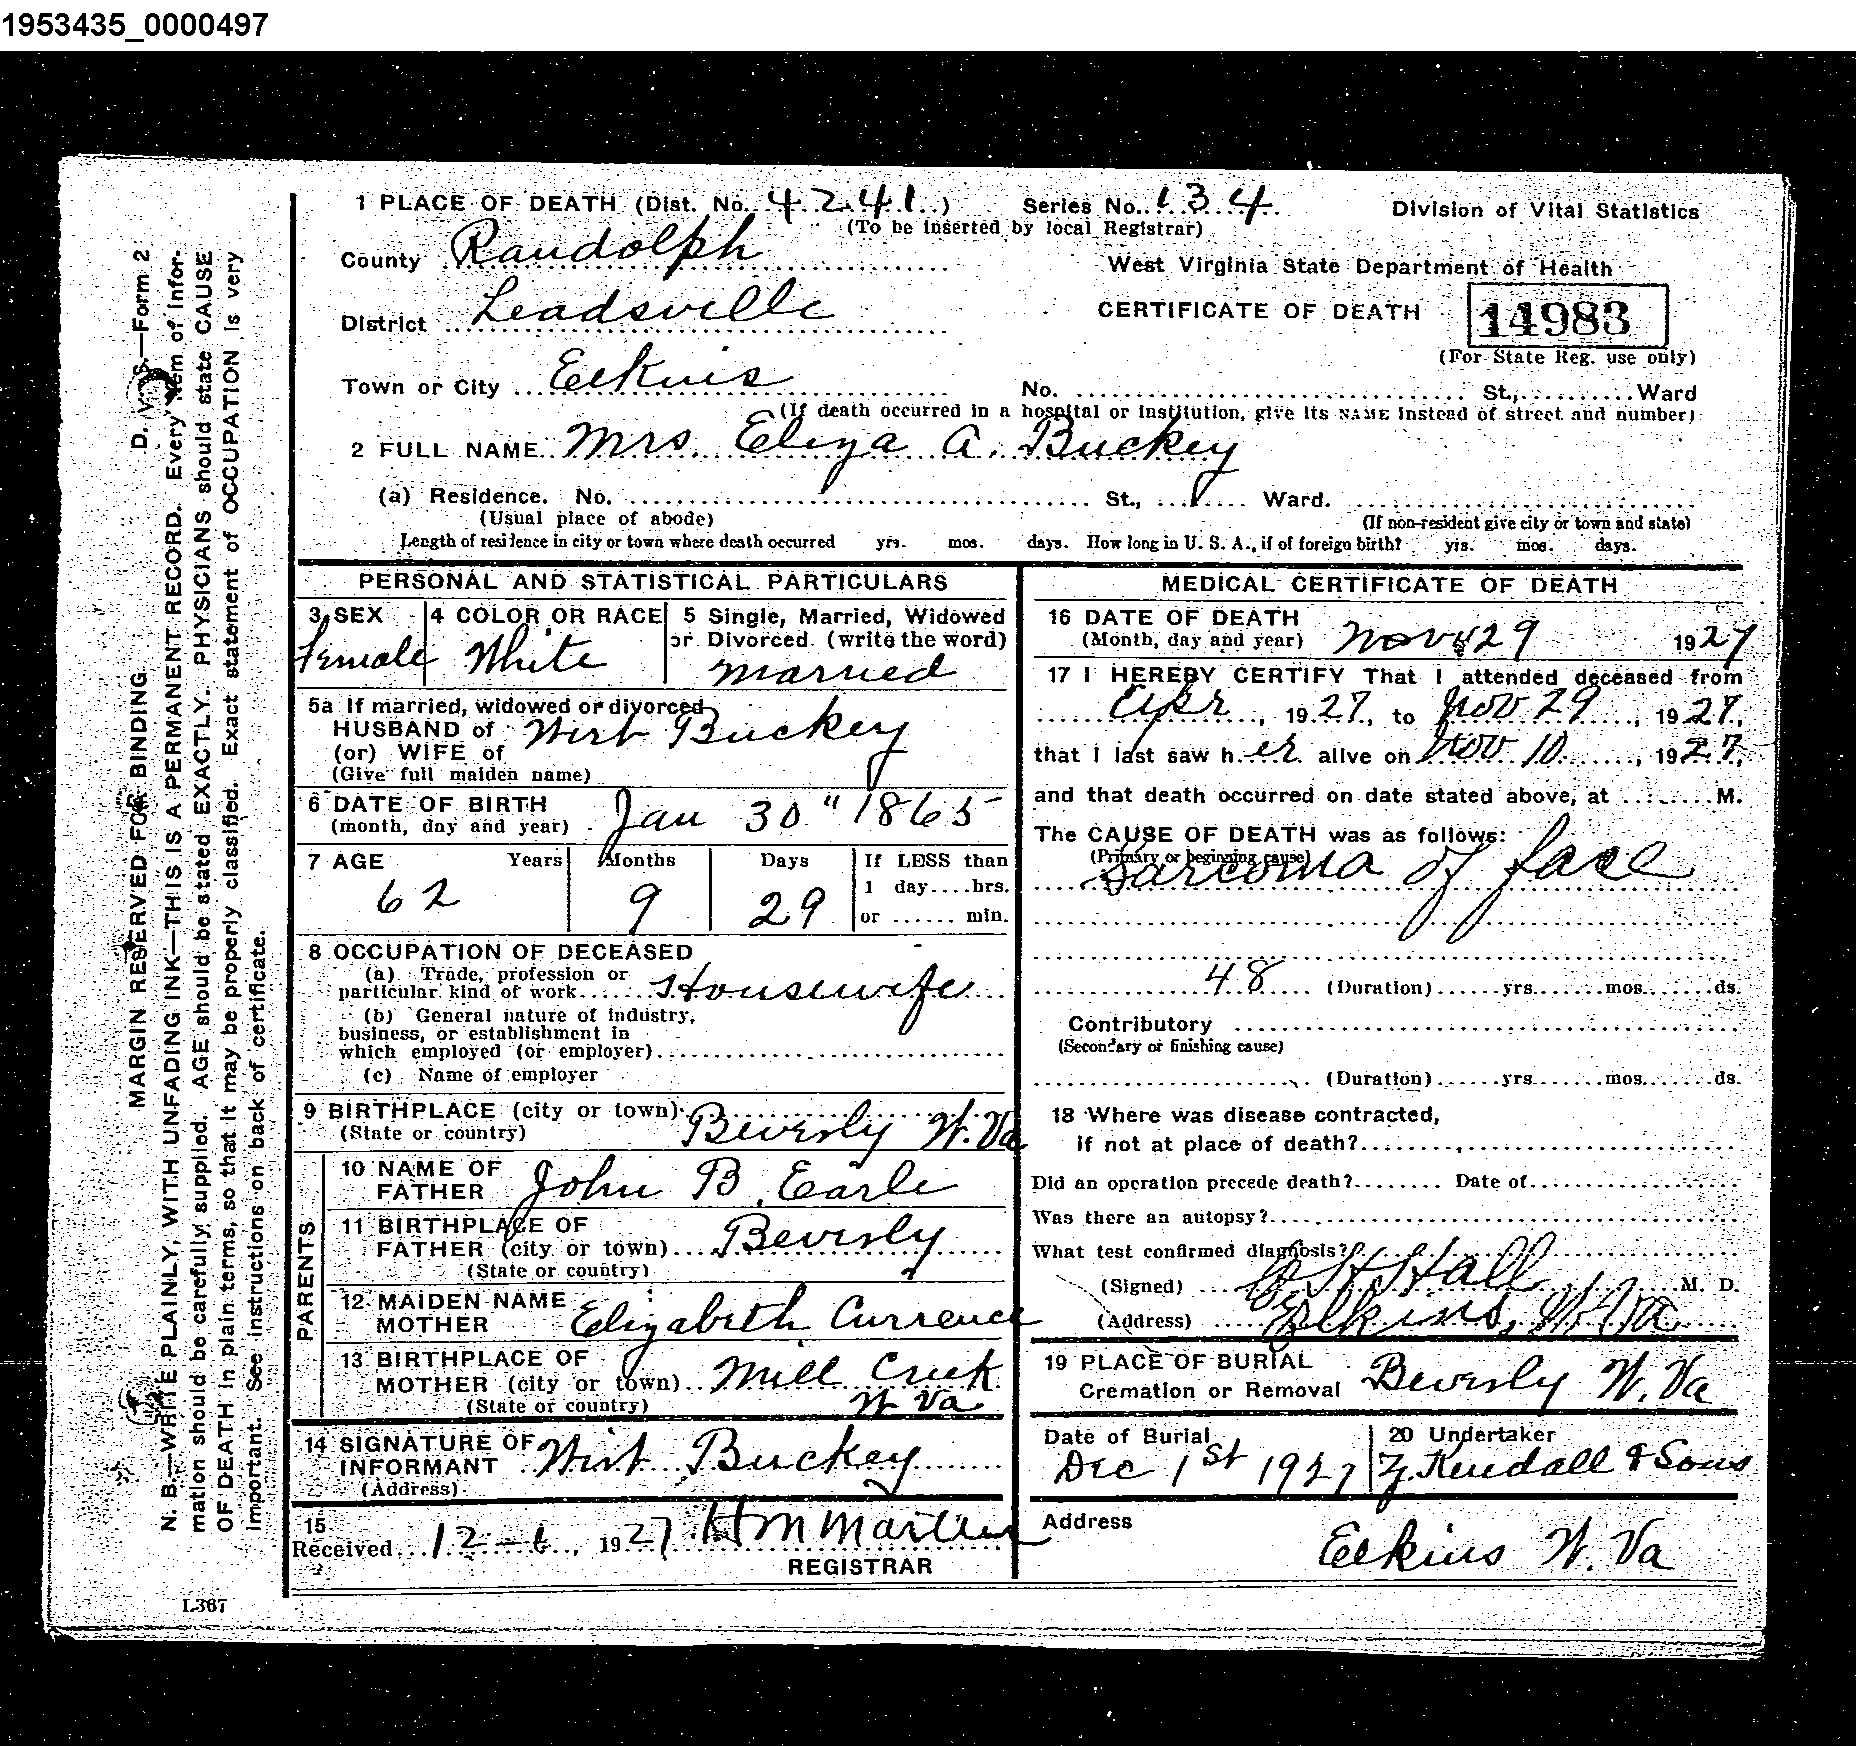 1953435_0000497
1 PLACE OF DEATH (Dist. No. 4241) Series No. 134 Division of Vital Statistics
(To be inserted by local Registrar)
County Randolph West Virginia State Department of Health
District Leadsville CERTIFICATE OF DEATH 14983
(For State Reg. use only)
Town or City Elkins No. St., Ward
(If death occurred in a hospital or institution, give its NAME instead of street and number)
2 FULL NAME Mrs. Eliza A. Buckey
(a) Residence. No. St., Ward.
(Usual place of abode) (If non-resident give city or town and state)
Length of residence in city or town where death occurred yrs. mos. days. How long in U. S. A., if of foreign birth? yrs. mos. days.
PERSONAL AND STATISTICAL PARTICULARS
3 SEX 4 COLOR OR RACE 5 Single, Married, Widowed
or Divorced (write the word)
Female White married
5a If married, widowed or divorced
HUSBAND of Wirt Buckey
(or) WIFE of
(Give full maiden name)
6 DATE OF BIRTH Jan 30" 1865
(month, day and year)
7 AGE Years Months Days If LESS than
1 day....hrs.
62 9 29
or ...... min.
8 OCCUPATION OF DECEASED
(a) Trade, profession or
particular kind of work Housewife
(b) General nature of industry,
business, or establishment in
which employed (or employer)
(c) Name of employer
9 BIRTHPLACE (city or town) Beverly W. Va
(State or country)
PARENTS
10 NAME OF
FATHER John B. Earle
11 BIRTHPLACE OF
FATHER (city or town) Beverly
(State or country)
12 MAIDEN NAME
MOTHER Elizabeth Currence
13 BIRTHPLACE OF
MOTHER (city or town) Mill Creek
(State or country) W Va
14 SIGNATURE OF
INFORMANT Wirt Buckey
(Address)
15
Received 12-6, 1927 H M Martin
REGISTRAR
MEDICAL CERTIFICATE OF DEATH
16 DATE OF DEATH
(Month, day and year) Nov 29 1927
17 I HEREBY CERTIFY That I attended deceased from
Apr, 1927, to Nov 29, 1927,
that I last saw h er alive on Nov 10, 1927,
and that death occurred on date stated above, at M.
The CAUSE OF DEATH was as follows:
(Primary or beginning cause)
Sarcoma of face
48 (Duration) yrs. mos. ds.
Contributory
(Secondary or finishing cause)
(Duration) yrs. mos. ds.
18 Where was disease contracted,
if not at place of death?
Did an operation precede death? Date of
Was there an autopsy?
What test confirmed diagnosis?
(Signed) Hall M. D.
(Address) Elkins, W Va
19 PLACE OF BURIAL
Cremation or Removal Beverly W. Va
Date of Burial 20 Undertaker
Dec 1st 1927 Kendall & Sons
Address
Elkins W. Va
D. V. S.—Form 2
MARGIN RESERVED FOR BINDING
N. B.—WRITE PLAINLY, WITH UNFADING INK—THIS IS A PERMANENT RECORD. Every item of infor-
mation should be carefully supplied. AGE should be stated EXACTLY. PHYSICIANS should state CAUSE
OF DEATH in plain terms, so that it may be properly classified. Exact statement of OCCUPATION is very
important. See instructions on back of certificate.
L367